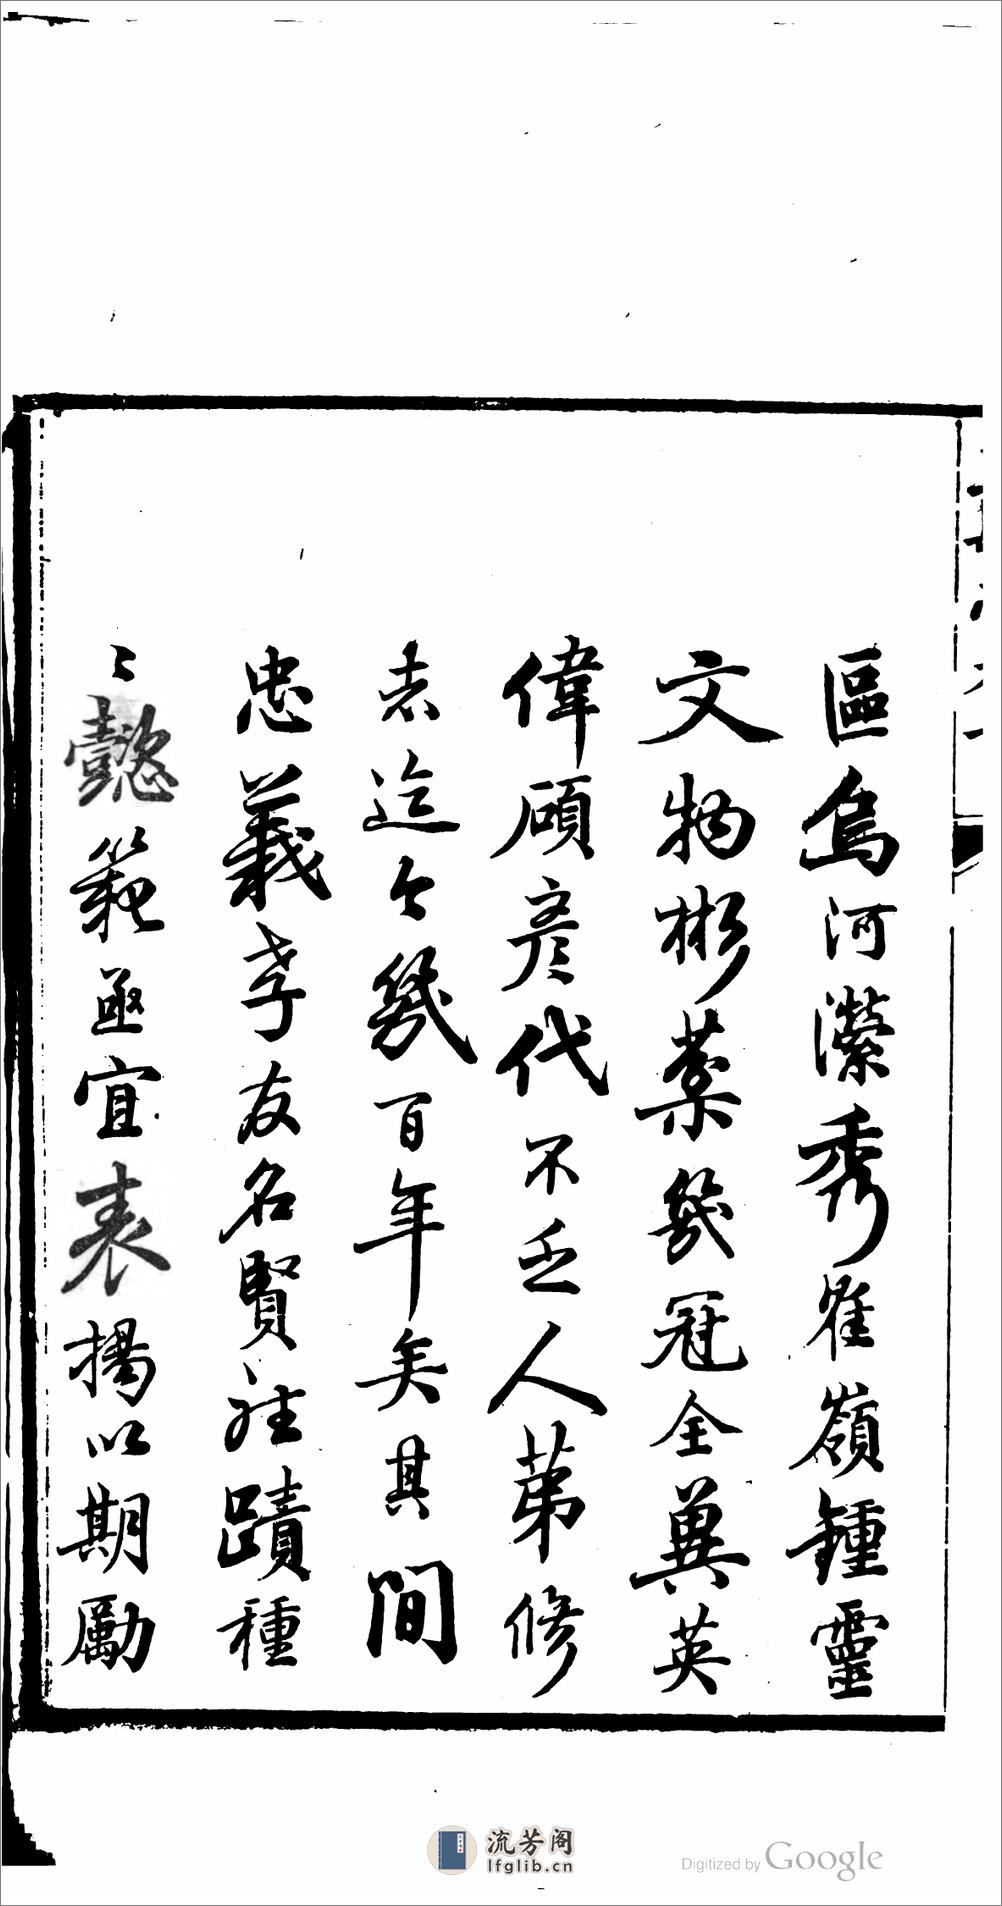 區烏河瀠秀崔嶺鍾靈
文物彬〓幾冠全冀英
偉碩彥代不乏人第修
志迄今幾百年矣其間
忠義孝友名賢往蹟種
〻懿範亟宜表揚以期勵
流芳阁
lfglib.cn
Digitized by Google